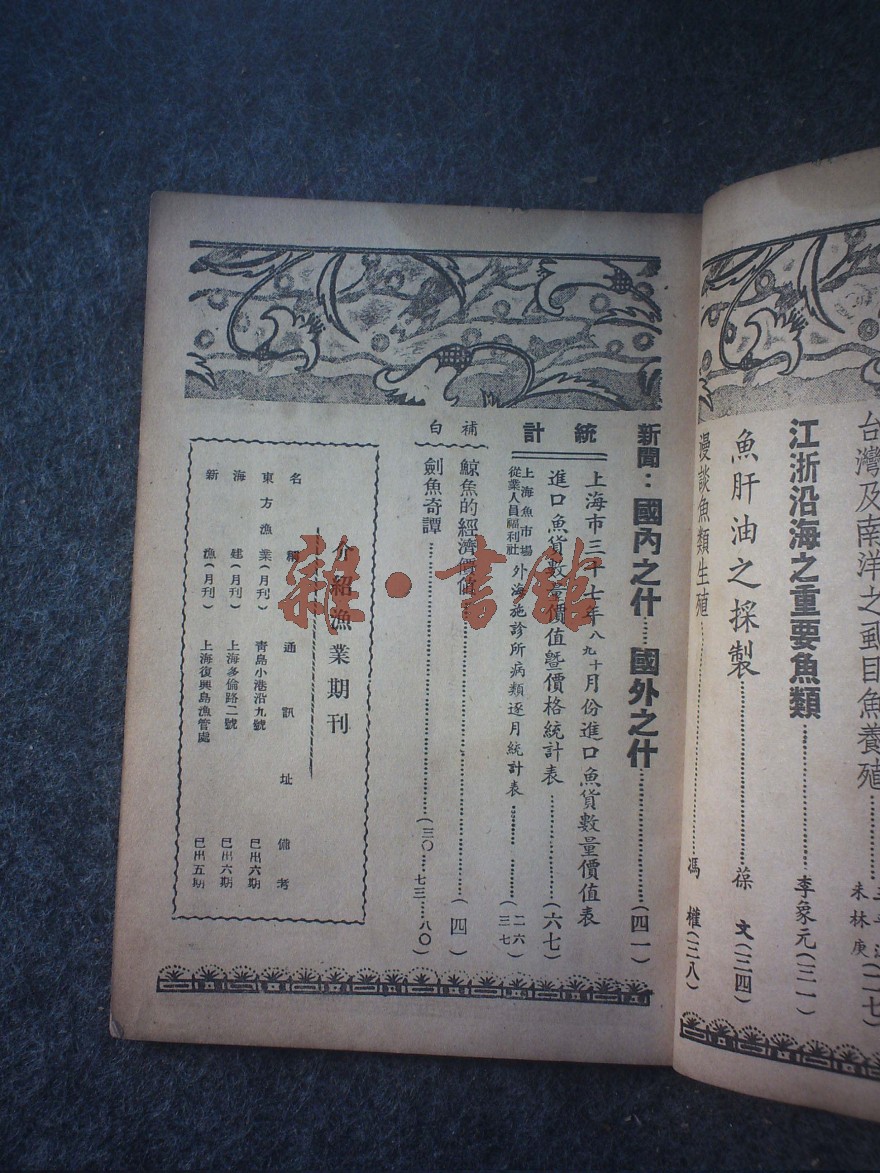 台灣及南洋之虱目魚養殖
朱林庚(一七)
江浙沿海之重要魚類 李象元(二一)
魚肝油之採製 葆 文(二四)
漫談魚類生殖 馮 權(二八)
新聞:國內之什……國外之什 (四一)
統計
上海市三十七年八九十月份進口魚貨數量價值表
進口魚貨數量價值暨價格統計表 (六七)
上海魚市場
從業人員福利社 外海施診所病類逐月統計表 二六
三七
補白
鯨魚的經濟價值 (四)
劍魚奇譚 (三〇.七三.八〇)
介紹漁業期刊
名稱 通訊址 備考
東方漁業(月刊) 青島小港沿九號 已出六期
海 建(月刊) 上海多倫路二號 已出六期
新 漁(月刊) 上海復興島漁管處 已出五期
雜·書館